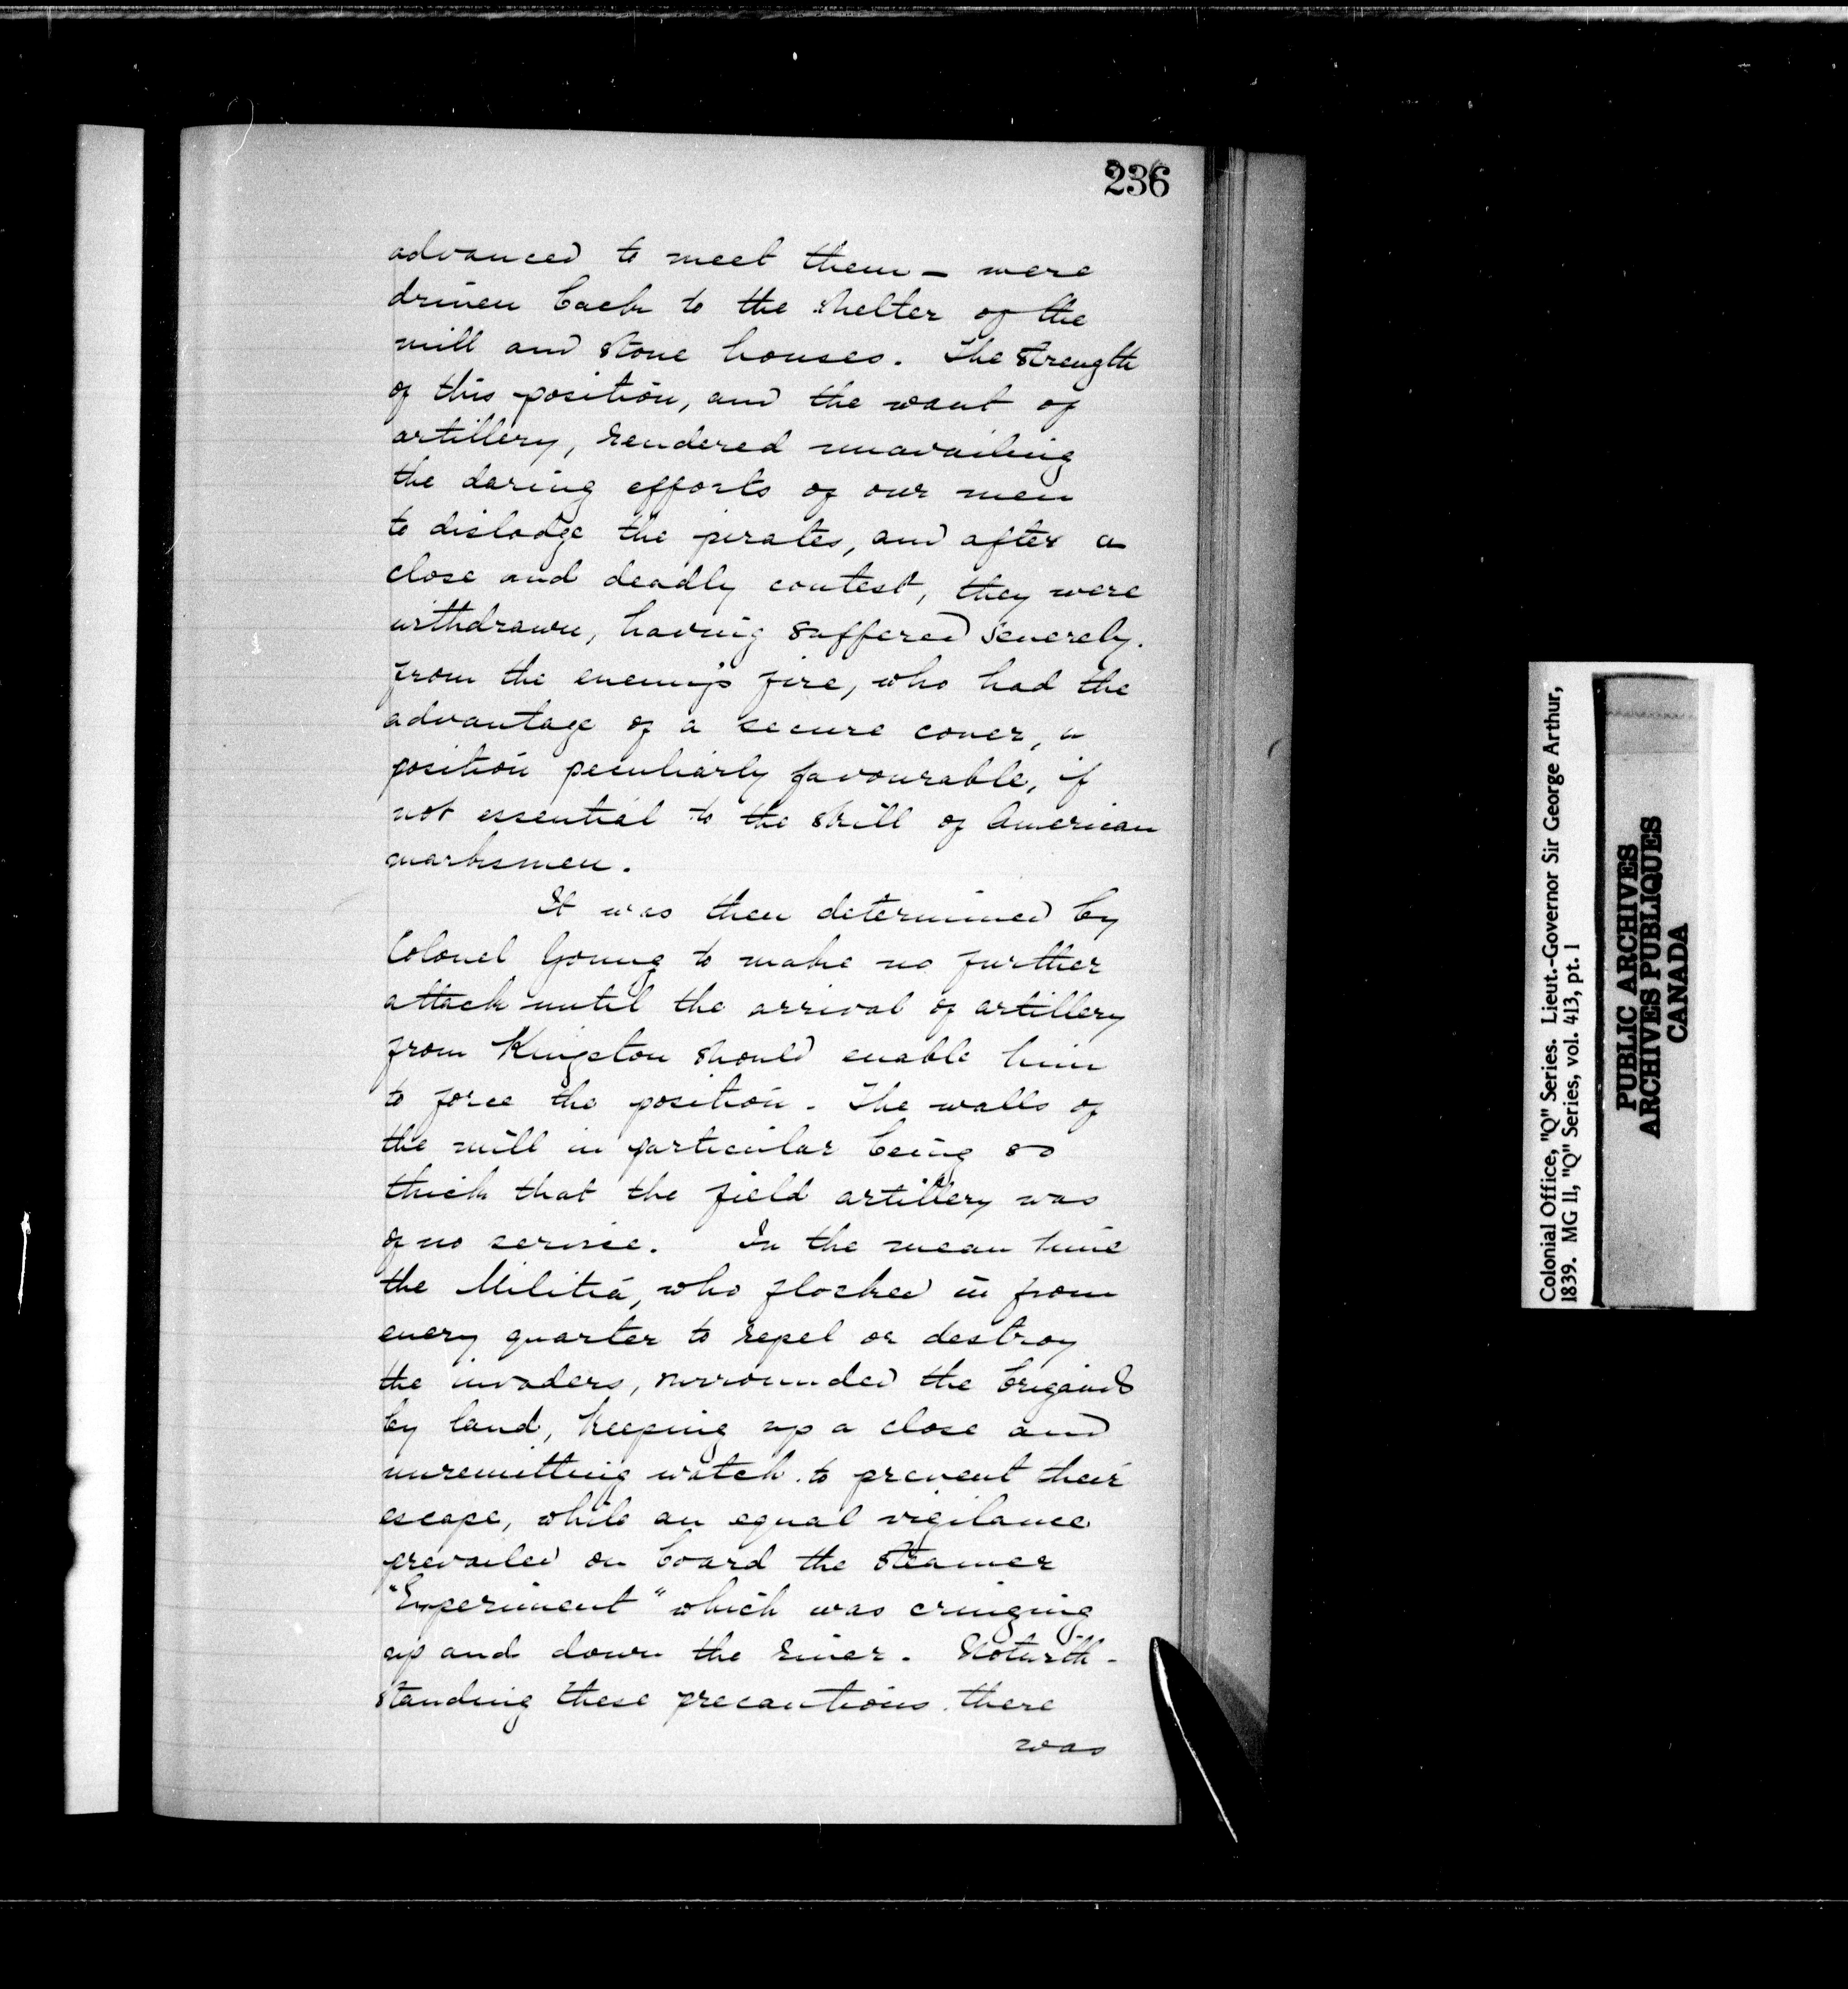 236
advanced to meet them — were
driven back to the shelter of the
mill and stone houses. The strength
of this position, and the want of
artillery, rendered unavailing
the daring efforts of our men
to dislodge the pirates, and after a
close and deadly contest, they were
withdrawn, having suffered severely.
from the enemy's fire, who had the
advantage of a secure cover, a
position peculiarly favourable, if
not essential to the skill of American
marksmen.
It was then determined by
Colonel Young to make no further
attack until the arrival of artillery
from Kingston should enable him
to force the position. The walls of
the mill in particular being so
thick that the field artillery was
of no service. In the mean time
the Militia, who flocked in from
every quarter to repel or destroy
the invaders, surrounded the brigands
by land, keeping up a close and
unremitting watch. to prevent their
escape, while an equal vigilance
prevailed on board the Steamer
"Experiment" which was cringing
up and down the river. Notwith-
standing these precautions. there
was
Colonial Office, "Q" Series. Lieut.-Governor Sir George Arthur,
1839. MG 11, "Q" Series, vol. 413, pt. 1
PUBLIC ARCHIVES
ARCHIVES PUBLIQUES
CANADA